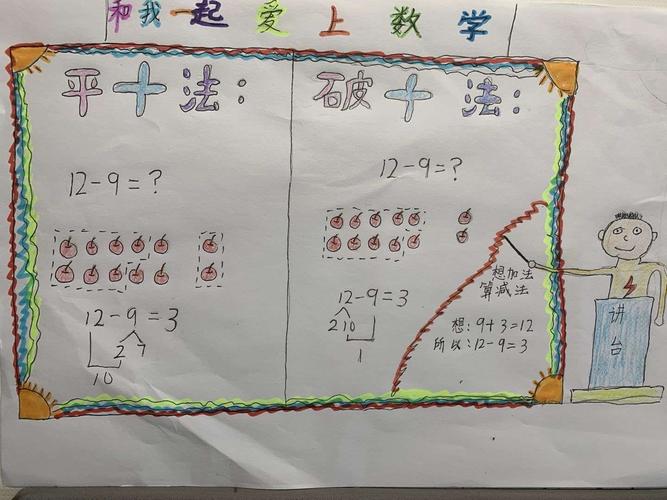 和我一起爱上数学
平十法:
12-9=?
12-9=3
2 7
10
破十法:
12-9=?
12-9=3
2 10
1
想加法
算减法
想:9+3=12
所以:12-9=3
讲台